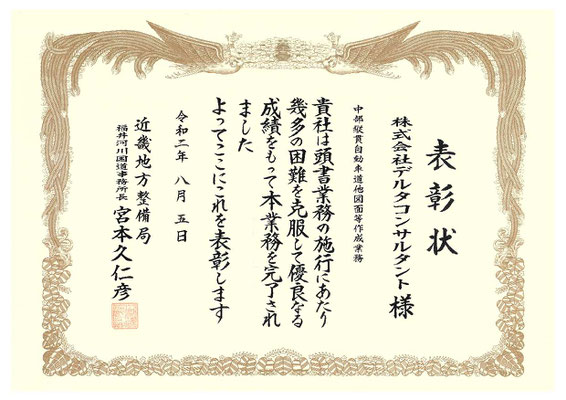 表彰状
株式会社デルタコンサルタント 様
中部縦貫自動車道他図面等作成業務
貴社は頭書業務の施行にあたり
幾多の困難を克服して優良なる
成績をもって本業務を完了され
ました
よってここにこれを表彰します
令和二年 八月 五日
近畿地方整備局
福井河川国道事務所長 宮本久仁彦